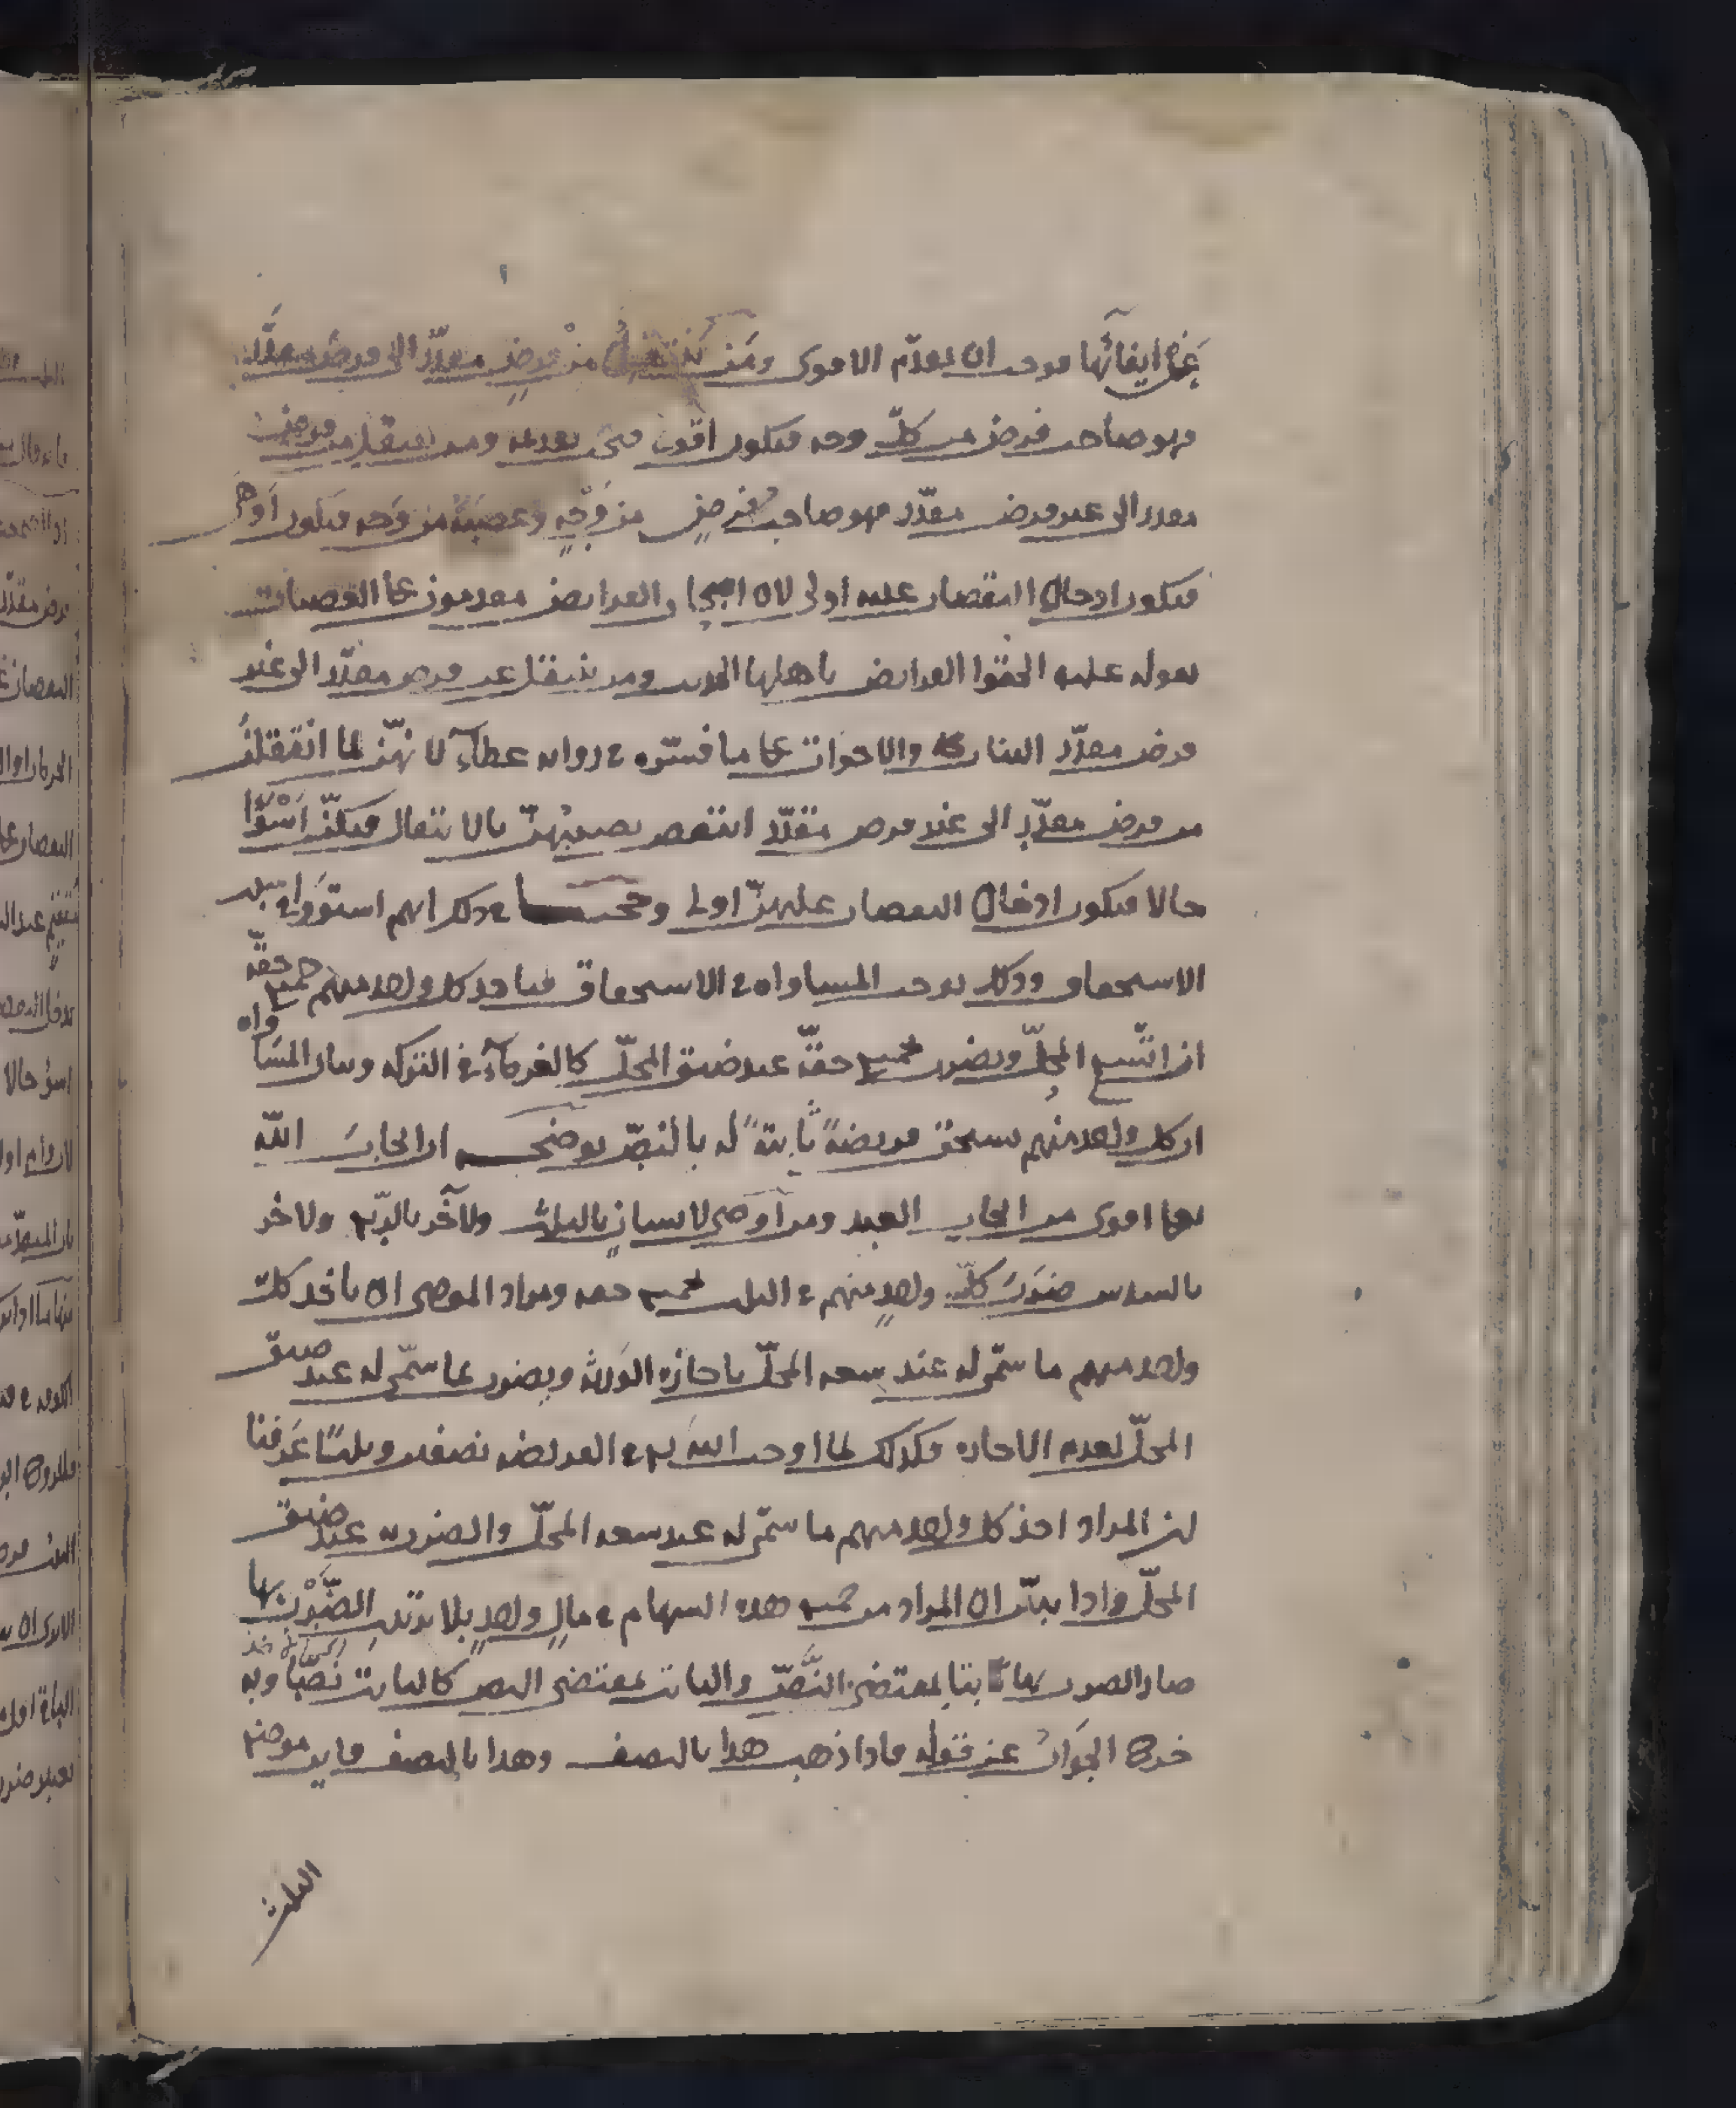 عن ايفائها فوجب ان يقدم الاقوى ومن ينتقل من فرضٍ مقدّر الى فرض مقدّر
فهو صاحب فرض من كلّ وجه فيكون اقوى فيجب تقديمه ومن ينتقل من فرض
مقدر الى غير فرض مقدّر فهو صاحب فرضٍ من وَجْهٍ وعصبة من وجه فيكون اوهى
فيكون ادخال النقصان عليه اولى لان اصحاب الفرايض مقدمون على العصبات
بقوله عليه الحقوا الفرايض باهلها الحديث ومن ينتقل عن فرض مقدّر الى غير
فرض مقدّر البنات والاخوات على ما فسّره في رواية عطاءٍ لانهنّ لما انتقلن
من فرض مقدّرٍ الى غير فرض مقدّر انتقص نصيبهنّ بالانتقال فيكنّ اسوأ
حالا فيكون ادخال النقصان عليهنّ اولى وحجتنا في ذلك انهم استووا في سبب
الاستحقاق وذلك يوجب المساواة في الاستحقاق فياخذ كل واحد منهم جميع حقّه
ان اتّسع المحلّ ويضرب بجميع حقّه عند ضيق المحلّ كالغرماء في التركه وبيان المساواه
ان كل واحد منهم يستحق فريضةً ثابتةً له بالنصّ يوضحه ان ايجاب الله
تعالى اقوى من ايجاب العبد ومن اوصى لانسانٍ بالثلث ولآخر بالربع ولاخر
بالسدس ضرب كلّ واحدٍ منهم في الثلث بجميع حقه ومراد الموصى ان ياخذ كل
واحد منهم ما سمّى له عند سعه المحلّ باجازه الورثه ويضرب بما سمّى له عند ضيق
المحلّ لعدم الاجازه فكذلك لما اوجب الله تع في الفريضه نصفين وثلثًا عَرفنا
ان المراد اخذ كل واحد منهم ما سمّى له عند سعه المحلّ والضرب به عند ضيق
المحلّ واذا تبيّن ان المراد من جميع هذه السهام في مالٍ واحدٍ بلا ترتيب الضَّرْبُ بها
صار الضرب بها ثابتا بمقتضى النّصّ والثابت بمقتضى النص كالثابت نصّا وبه
خرج الجوابُ عن قوله فاذا ذهب هذا بالنصف وهذا بالنصف فاين موضع
الثلث